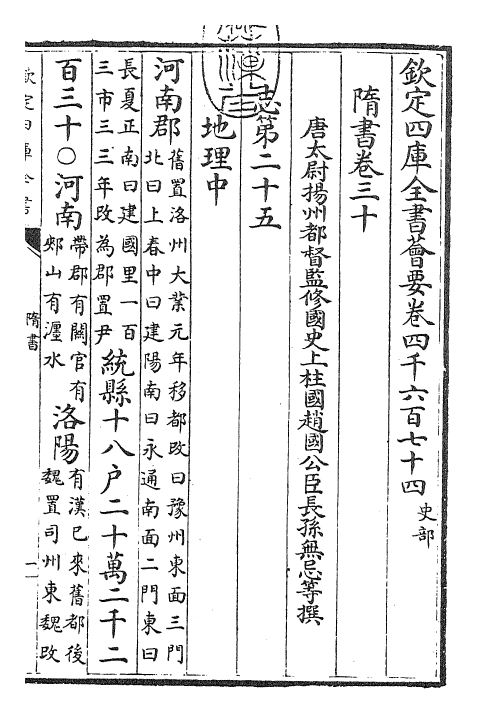 欽定四庫全書薈要卷四千六百七十四 史部
隋書卷三十
唐太尉揚州都督監修國史上柱國趙國公臣長孫無忌等撰
志第二十五
地理中
河南郡 舊置洛州大業元年移都改曰豫州東面三門
北曰上春中曰建陽南曰永通南面二門東曰
長夏正南曰建國里一百
三市三三年改為郡置尹
統縣十八户二十萬二千二
百三十○河南 帶郡有關官有
郟山有瀍水
洛陽 有漢已來舊都後
魏置司州東魏改
隋書
一